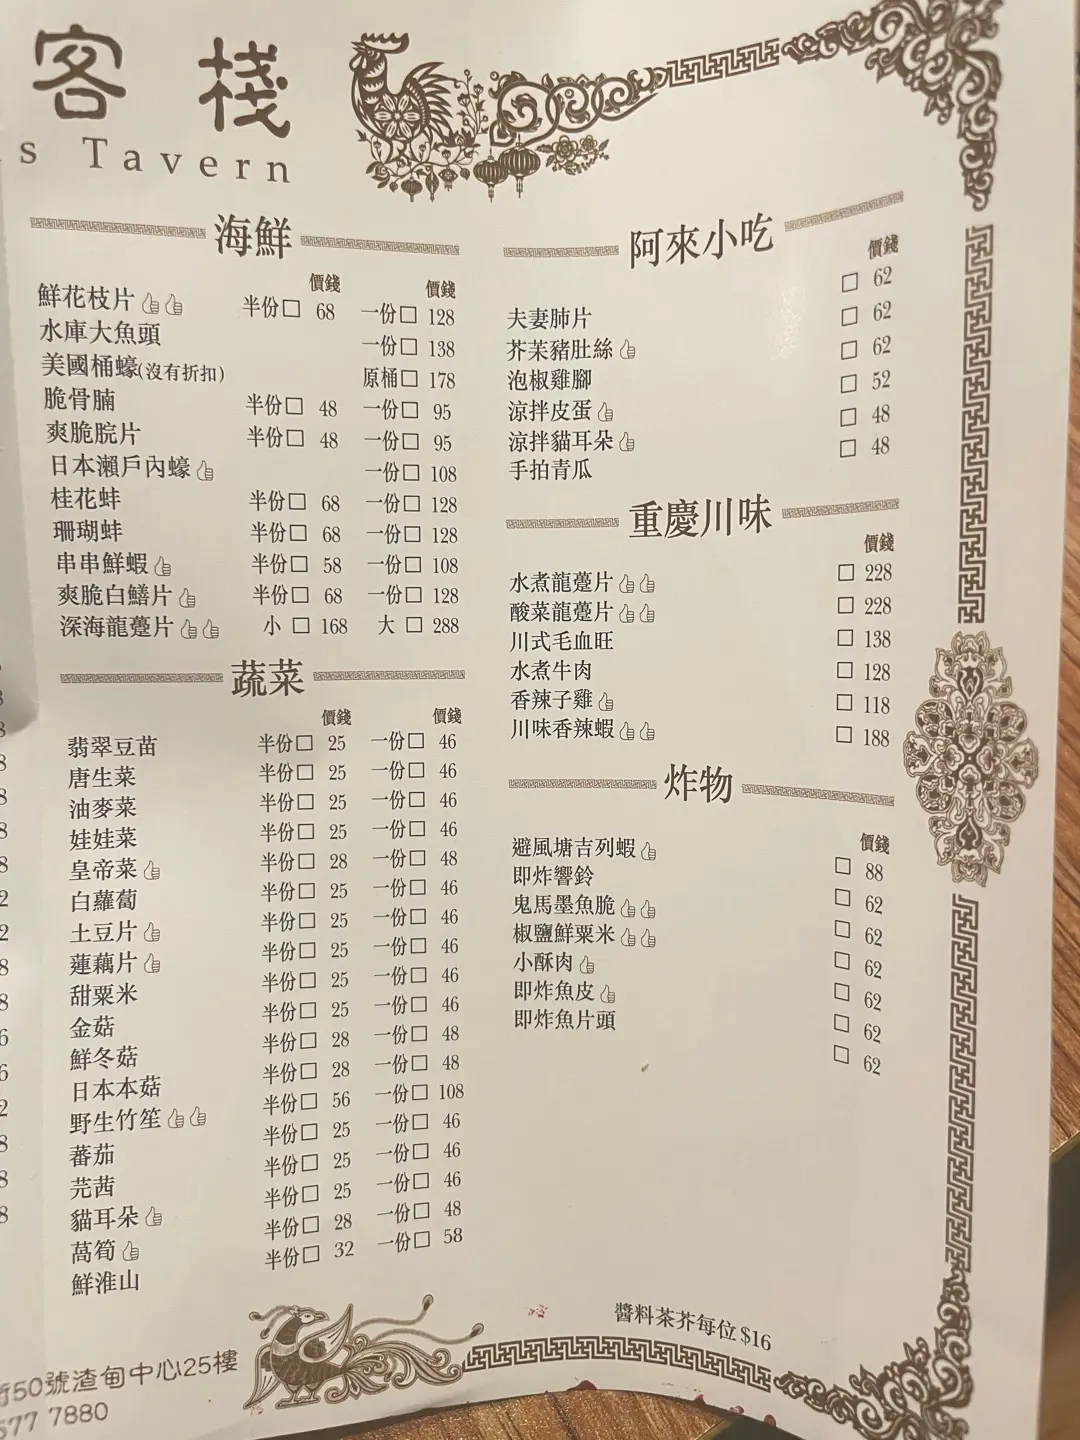 客棧
s Tavern
海鮮
價錢 價錢
鮮花枝片 半份□ 68 一份□ 128
水庫大魚頭 一份□ 138
美國桶蠔(沒有折扣) 原桶□ 178
脆骨腩 半份□ 48 一份□ 95
爽脆脘片 半份□ 48 一份□ 95
日本瀨戶內蠔 一份□ 108
桂花蚌 半份□ 68 一份□ 128
珊瑚蚌 半份□ 68 一份□ 128
串串鮮蝦 半份□ 58 一份□ 108
爽脆白鱔片 半份□ 68 一份□ 128
深海龍躉片 小 □ 168 大 □ 288
蔬菜
價錢 價錢
翡翠豆苗 半份□ 25 一份□ 46
唐生菜 半份□ 25 一份□ 46
油麥菜 半份□ 25 一份□ 46
娃娃菜 半份□ 25 一份□ 46
皇帝菜 半份□ 28 一份□ 48
白蘿蔔 半份□ 25 一份□ 46
土豆片 半份□ 25 一份□ 46
蓮藕片 半份□ 25 一份□ 46
甜粟米 半份□ 25 一份□ 46
金菇 半份□ 25 一份□ 46
鮮冬菇 半份□ 28 一份□ 48
日本本菇 半份□ 28 一份□ 48
野生竹笙 半份□ 56 一份□ 108
蕃茄 半份□ 25 一份□ 46
芫茜 半份□ 25 一份□ 46
貓耳朵 半份□ 25 一份□ 46
萵筍 半份□ 28 一份□ 48
鮮淮山 半份□ 32 一份□ 58
阿來小吃
價錢
夫妻肺片 □ 62
芥茉豬肚絲 □ 62
泡椒雞腳 □ 62
涼拌皮蛋 □ 52
涼拌貓耳朵 □ 48
手拍青瓜 □ 48
重慶川味
價錢
水煮龍躉片 □ 228
酸菜龍躉片 □ 228
川式毛血旺 □ 138
水煮牛肉 □ 128
香辣子雞 □ 118
川味香辣蝦 □ 188
炸物
價錢
避風塘吉列蝦 □ 88
即炸響鈴 □ 62
鬼馬墨魚脆 □ 62
椒鹽鮮粟米 □ 62
小酥肉 □ 62
即炸魚皮 □ 62
即炸魚片頭 □ 62
醬料茶芥每位 $16
街50號渣甸中心25樓
577 7880